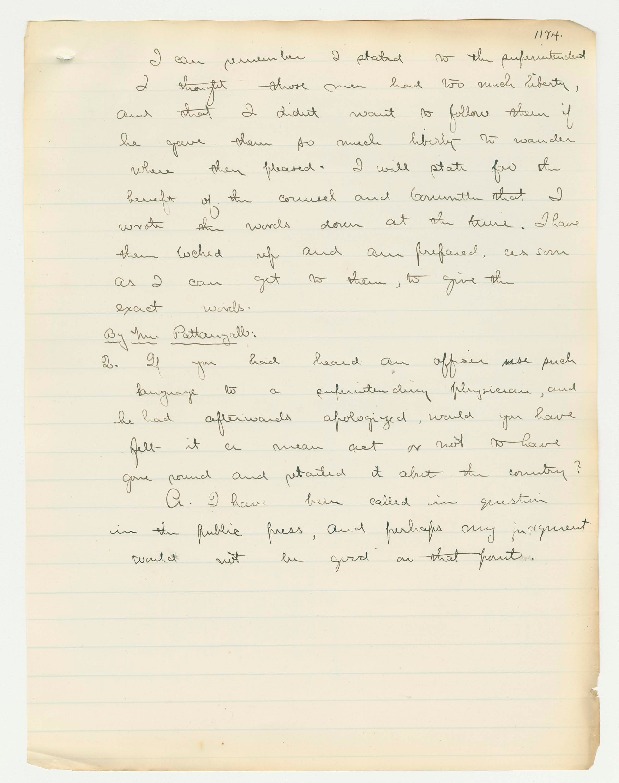 1174.
I can remember I stated to the superintendent
I thought those men had too much liberty,
and that I didn't want to follow them if
he gave them so much liberty to wander
where they pleased. I will state for the
benefit of the counsel and Committee that I
wrote the words down at the time. I have
them locked up and am prepared, as soon
as I can get to them, to give the
exact words.
By Mr. Pattangall:
Q. If you had heard an officer use such
language to a superintending physician, and
he had afterwards apologized, would you have
felt it a mean act or not to have
gone round and retailed it about the country?
A. I have been called in question
in the public press, and perhaps my judgment
would not be good on that point.